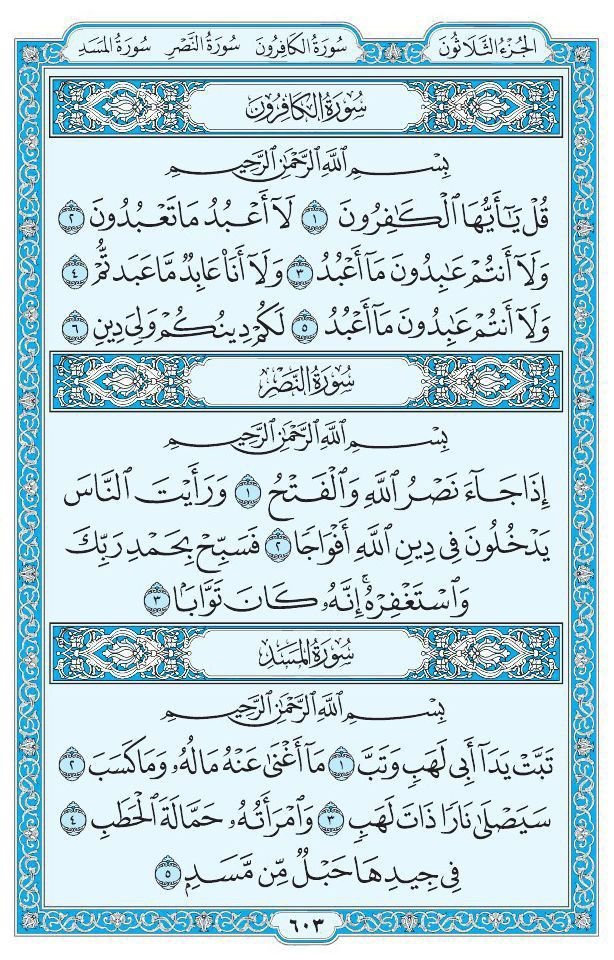 الجُزءُ الثَّلَاثُونَ سُورَةُ الكَافِرُونَ سُورَةُ النَّصْرِ سُورَةُ المَسَدِ
سُورَةُ الكَافِرُونَ
بِسْمِ ٱللَّهِ ٱلرَّحْمَٰنِ ٱلرَّحِيمِ
قُلْ يَٰٓأَيُّهَا ٱلْكَٰفِرُونَ ١ لَآ أَعْبُدُ مَا تَعْبُدُونَ ٢
وَلَآ أَنتُمْ عَٰبِدُونَ مَآ أَعْبُدُ ٣ وَلَآ أَنَا۠ عَابِدٌ مَّا عَبَدتُّمْ ٤
وَلَآ أَنتُمْ عَٰبِدُونَ مَآ أَعْبُدُ ٥ لَكُمْ دِينُكُمْ وَلِىَ دِينِ ٦
سُورَةُ النَّصْرِ
بِسْمِ ٱللَّهِ ٱلرَّحْمَٰنِ ٱلرَّحِيمِ
إِذَا جَآءَ نَصْرُ ٱللَّهِ وَٱلْفَتْحُ ١ وَرَأَيْتَ ٱلنَّاسَ
يَدْخُلُونَ فِى دِينِ ٱللَّهِ أَفْوَاجًا ٢ فَسَبِّحْ بِحَمْدِ رَبِّكَ
وَٱسْتَغْفِرْهُ ۚ إِنَّهُۥ كَانَ تَوَّابًۢا ٣
سُورَةُ المَسَدِ
بِسْمِ ٱللَّهِ ٱلرَّحْمَٰنِ ٱلرَّحِيمِ
تَبَّتْ يَدَآ أَبِى لَهَبٍ وَتَبَّ ١ مَآ أَغْنَىٰ عَنْهُ مَالُهُۥ وَمَا كَسَبَ ٢
سَيَصْلَىٰ نَارًا ذَاتَ لَهَبٍ ٣ وَٱمْرَأَتُهُۥ حَمَّالَةَ ٱلْحَطَبِ ٤
فِى جِيدِهَا حَبْلٌ مِّن مَّسَدٍۭ ٥
٦٠٣